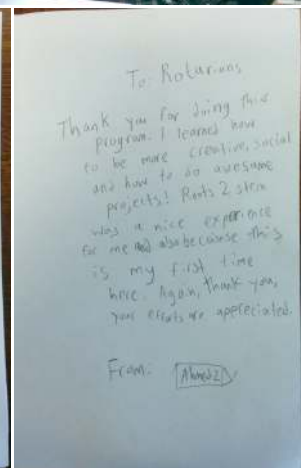 To Rotarians
Thank you for doing this
program. I learned how
to be more creative, social
and how to do awesome
projects! Roots 2 stem
was a nice experience
for me also because this
is my first time
here. Again, thank you,
your efforts are appreciated.
From: Ahmed Z